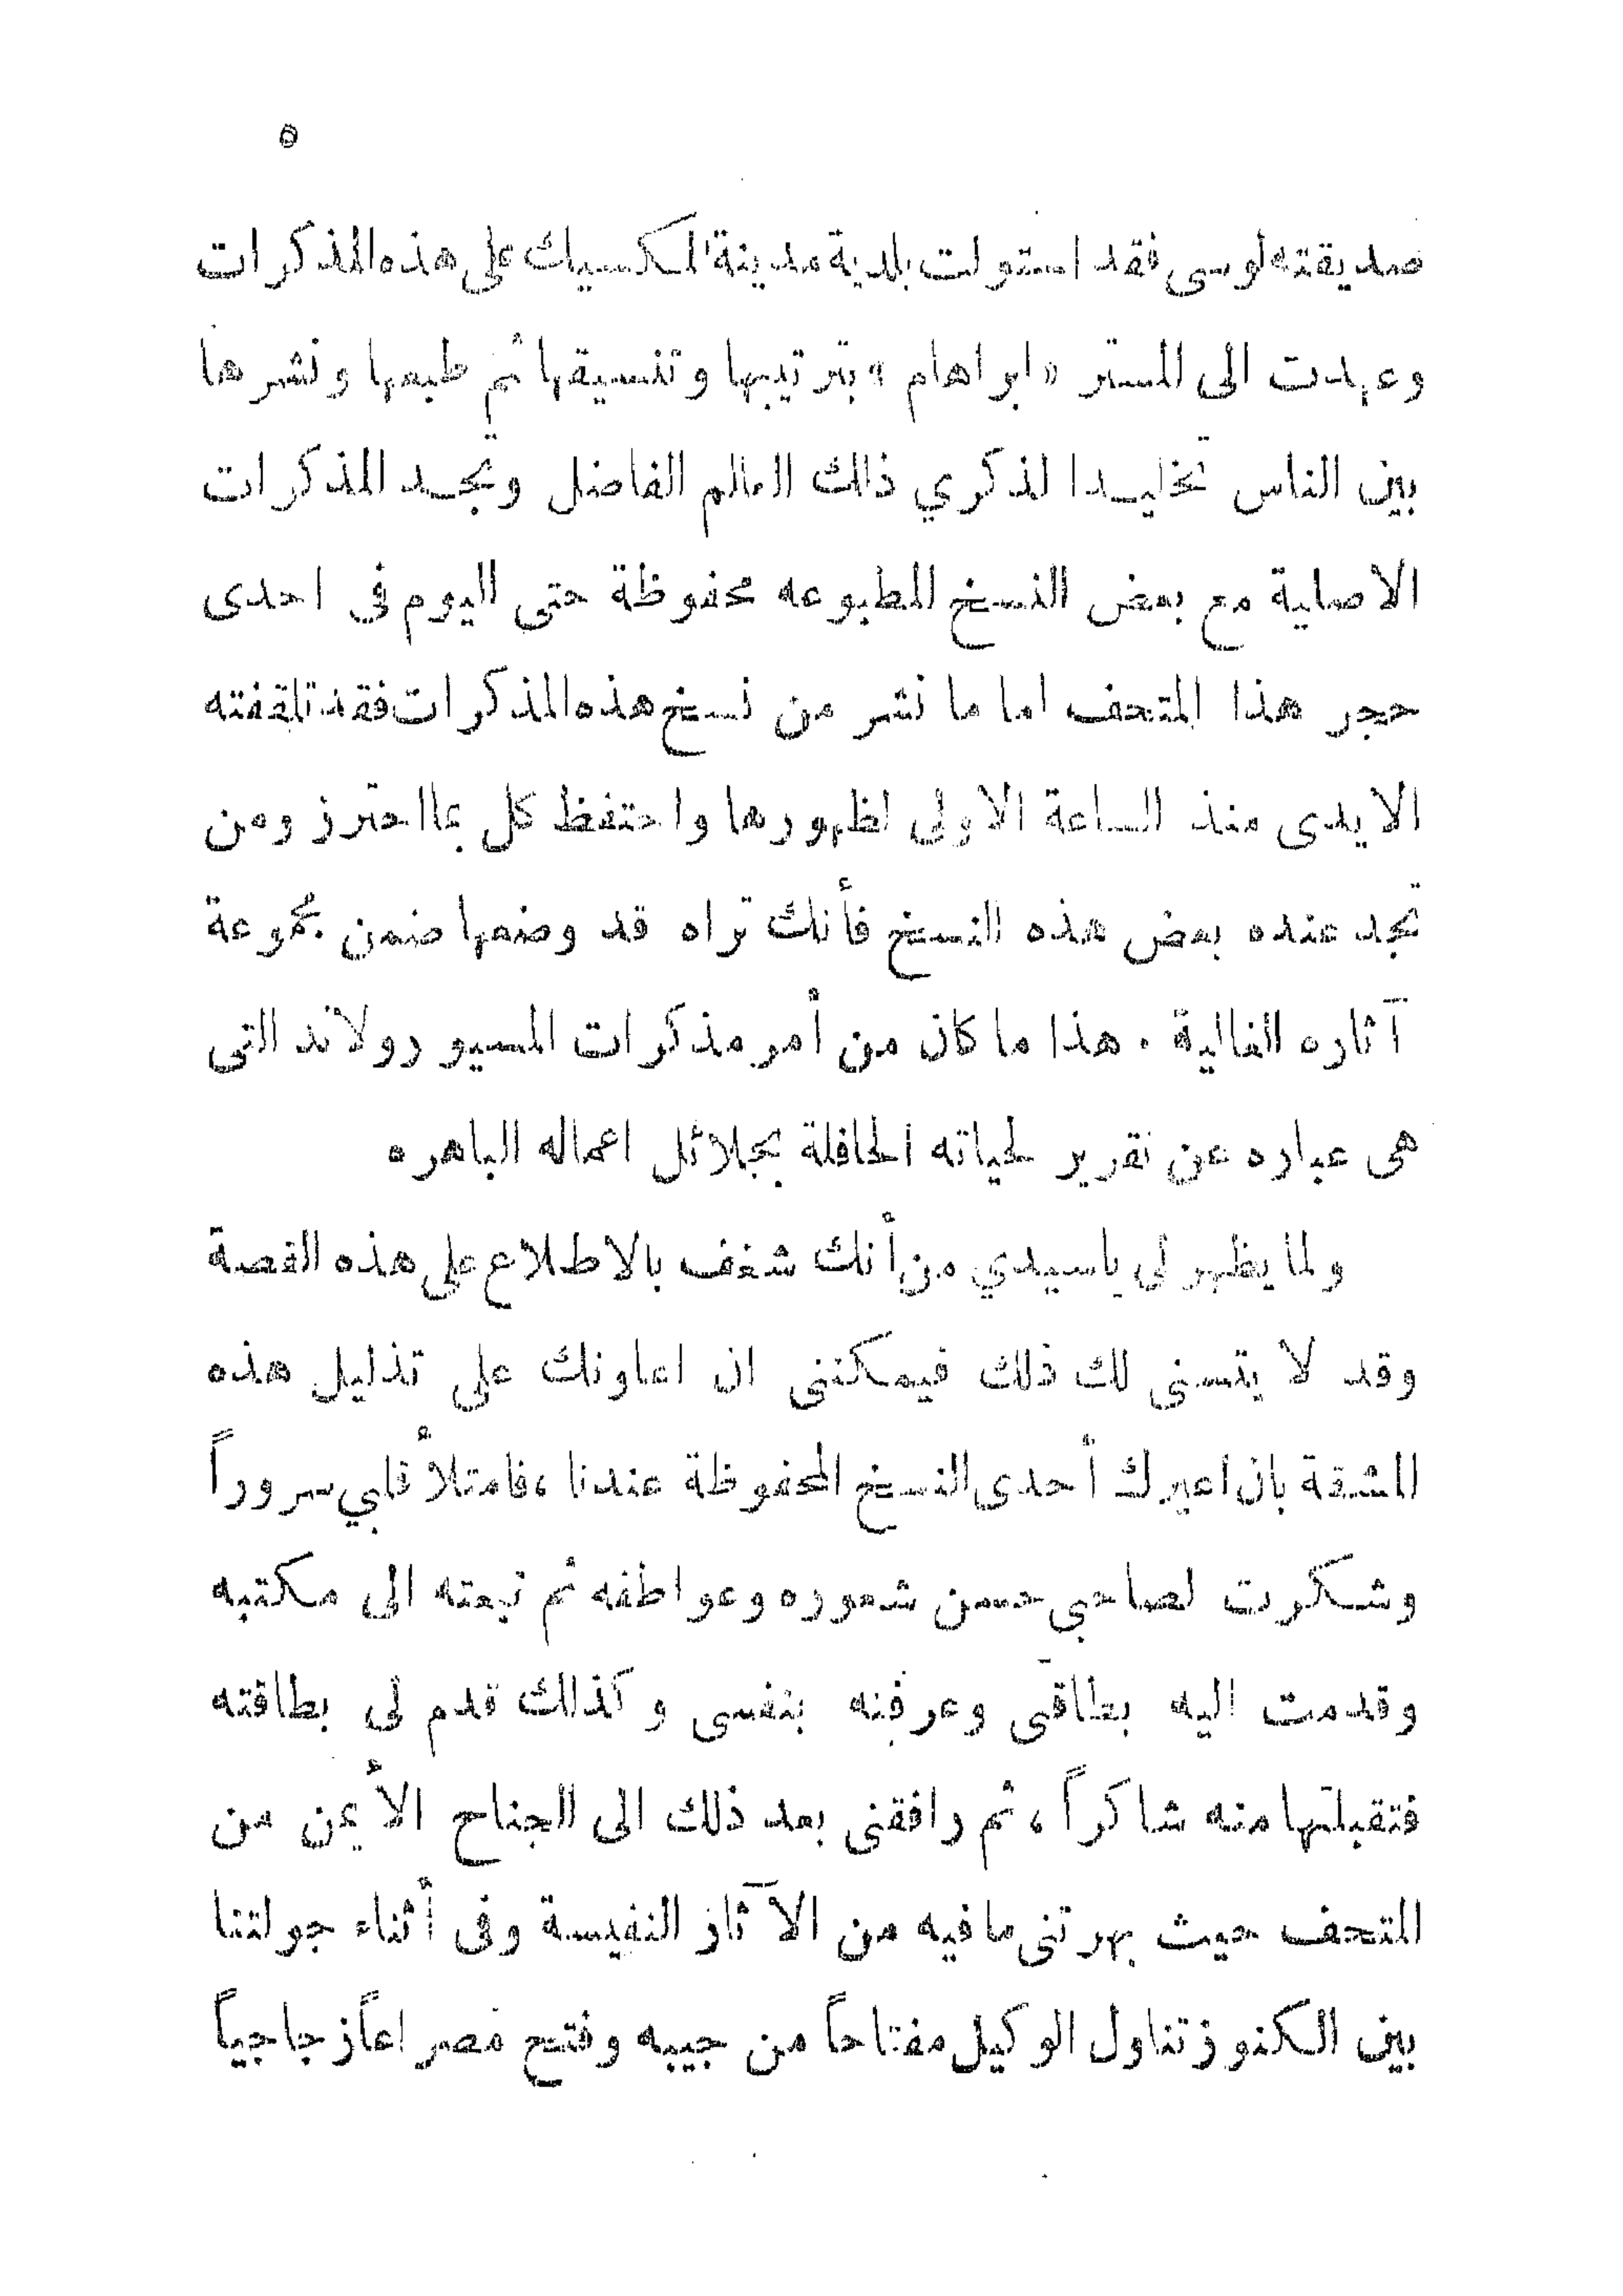 ٥
صديقته لوسى فقد استولت بلدية مدينة المكسيك على هذه المذكرات
وعهدت الى المستر « ابراهام » بترتيبها وتنسيقها ثم طبعها ونشرها
بين الناس تخليدا لذكري ذلك العالم الفاضل وتجد المذكرات
الاصلية مع بعض النسخ المطبوعه محفوظة حتى اليوم فى احدى
حجر هذا المتحف اما ما نشر من نسخ هذه المذكرات فقد تلقفته
الايدى منذ الساعة الاولى لظهورها واحتفظ كل بما احترز ومن
تجد عنده بعض هذه النسخ فأنك تراه قد وضعها ضمن مجموعة
آثاره الغالية . هذا ما كان من أمر مذكرات المسيو رولاند التى
هى عباره عن تقرير لحياته الحافلة بجلائل اعماله الباهره
ولما يظهر لى ياسيدي من أنك شغف بالاطلاع على هذه القصة
وقد لا يتسنى لك ذلك فيمكننى ان اعاونك على تذليل هذه
المشقة بان اعيرك أحدى النسخ المحفوظة عندنا ، فامتلأ قلبي سروراً
وشكرت لصاحبي حسن شعوره وعواطفه ثم تبعته الى مكتبه
وقدمت اليه بطاقتى وعرفته بنفسى وكذلك قدم لى بطاقته
فتقبلتها منه شاكراً ، ثم رافقنى بعد ذلك الى الجناح الأيمن من
المتحف حيث بهرتنى ما فيه من الآثار النفيسة وفى أثناء جولتنا
بين الكنوز تناول الوكيل مفتاحاً من جيبه وفتح مصراعاً زجاجياً